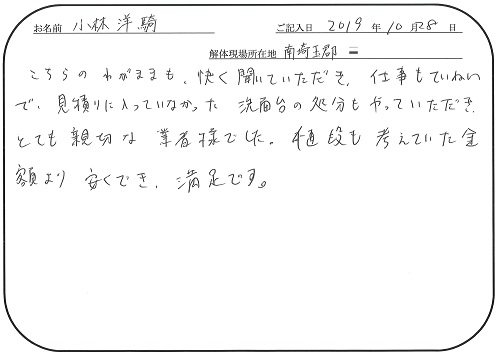 お名前 小林洋騎 ご記入日 2019 年 10 月 28 日
解体現場所在地 南埼玉郡
こちらのわがままも、快く聞いていただき、仕事もていねい
で、見積りに入っていなかった 洗面台の処分もやっていただき、
とても親切な業者様でした。値段も考えていた金
額より安くでき、満足です。